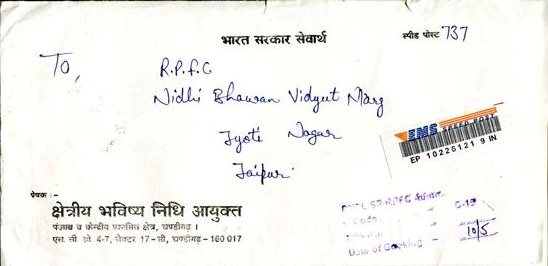 भारत सरकार सेवार्थ
स्पीड पोस्ट 737
To,
R.P.F.C
Nidhi Bhawan Vidyut Marg
Jyoti Nagar
Jaipur
EMS SPEED POST
EP 10226121 9 IN
प्रेषक :-
क्षेत्रीय भविष्य निधि आयुक्त
पंजाब व केन्द्रीय प्रशासित क्षेत्र, चण्डीगढ़ ।
एस. सी. ओ. 4-7, सैक्टर 17-सी, चण्डीगढ़ - 160 017
SP RPFC
C-19
Date of Booking - 10/5